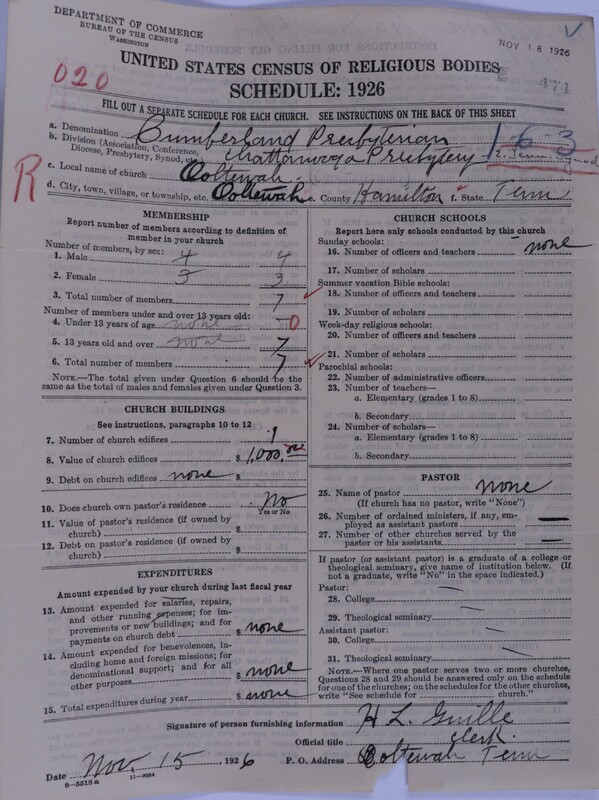 DEPARTMENT OF COMMERCE
BUREAU OF THE CENSUS
WASHINGTON
NOV 18 1926
474
020
UNITED STATES CENSUS OF RELIGIOUS BODIES
SCHEDULE: 1926
FILL OUT A SEPARATE SCHEDULE FOR EACH CHURCH. SEE INSTRUCTIONS ON THE BACK OF THIS SHEET
a. Denomination Cumberland Presbyterian 1-6-3
b. Division (Association, Conference, Diocese, Presbytery, Synod, etc.) Chattanooga Presbytery
c. Local name of church Ooltewah.
R
d. City, town, village, or township, etc. Ooltewah e. County Hamilton f. State Tenn
MEMBERSHIP
Report number of members according to definition of member in your church
Number of members, by sex:
1. Male 4 4
2. Female 3 3
3. Total number of members 7
Number of members under and over 13 years old:
4. Under 13 years of age none 0
5. 13 years old and over none 7
6. Total number of members 7
NOTE.—The total given under Question 6 should be the same as the total of males and females given under Question 3.
CHURCH BUILDINGS
See instructions, paragraphs 10 to 12
7. Number of church edifices 1
8. Value of church edifices $ 1,000.00
9. Debt on church edifices none $
10. Does church own pastor's residence No
Yes or No
11. Value of pastor's residence (if owned by church) $
12. Debt on pastor's residence (if owned by church) $
EXPENDITURES
Amount expended by your church during last fiscal year
13. Amount expended for salaries, repairs, and other running expenses; for improvements or new buildings; and for payments on church debt $ none
14. Amount expended for benevolences, including home and foreign missions; for denominational support; and for all other purposes $ none
15. Total expenditures during year $ none
CHURCH SCHOOLS
Report here only schools conducted by this church
Sunday schools:
16. Number of officers and teachers none
17. Number of scholars
Summer vacation Bible schools:
18. Number of officers and teachers
19. Number of scholars
Week-day religious schools:
20. Number of officers and teachers
21. Number of scholars
Parochial schools:
22. Number of administrative officers
23. Number of teachers—
a. Elementary (grades 1 to 8)
b. Secondary
24. Number of scholars—
a. Elementary (grades 1 to 8)
b. Secondary
PASTOR
25. Name of pastor none
(If church has no pastor, write "None")
26. Number of ordained ministers, if any, employed as assistant pastors —
27. Number of other churches served by the pastor or his assistants —
If pastor (or assistant pastor) is a graduate of a college or theological seminary, give name of institution below. (If not a graduate, write "No" in the space indicated.)
Pastor:
28. College —
29. Theological seminary —
Assistant pastor:
30. College —
31. Theological seminary —
NOTE.—Where one pastor serves two or more churches, Questions 28 and 29 should be answered only on the schedule for one of the churches; on the schedules for the other churches, write "See schedule for church."
Signature of person furnishing information H L. Guille
Official title clerk.
Date Nov 15, 1926 P. O. Address Ooltewah Tenn
8—5518a 11—9064